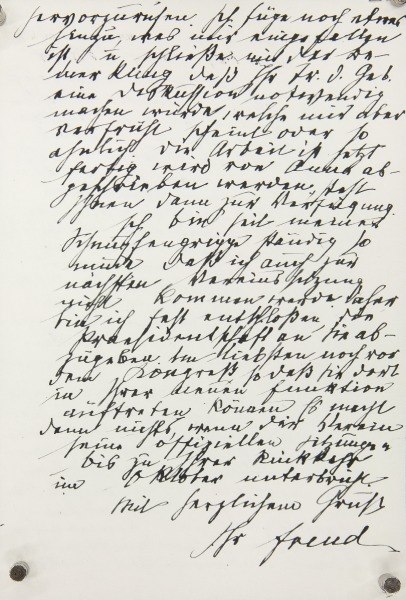 hervorzurufen. Ich füge noch etwas
hinzu, was mir eingefallen
ist, u schließe mit der Be-
merkung daß Ihr Tr. d. Geb.
eine Diskussion notwendig
machen würde, welche mir aber
verfrüht scheint oder so
ähnlich Die Arbeit ist jetzt
fertig wird von Anna ab-
geschrieben werden, steht
Ihnen dann zur Verfügung.
Ich bin seit meiner
ständig so
müde daß ich auch zur
nächsten Vereinssitzung
nicht kommen werde Daher
bin ich fest entschloßen die
Praesidentschaft an Sie ab-
zugeben. Am liebsten noch vor
dem Kongreß so daß Sie dort
in Ihrer neuen Funktion
auftreten können Es macht
dann nichts, wenn der Verein
seine offiziellen Sitzungen
bis zu Ihrer Rückkehr
im Oktober unterbricht.
Mit herzlichem Gruß
Ihr Freud